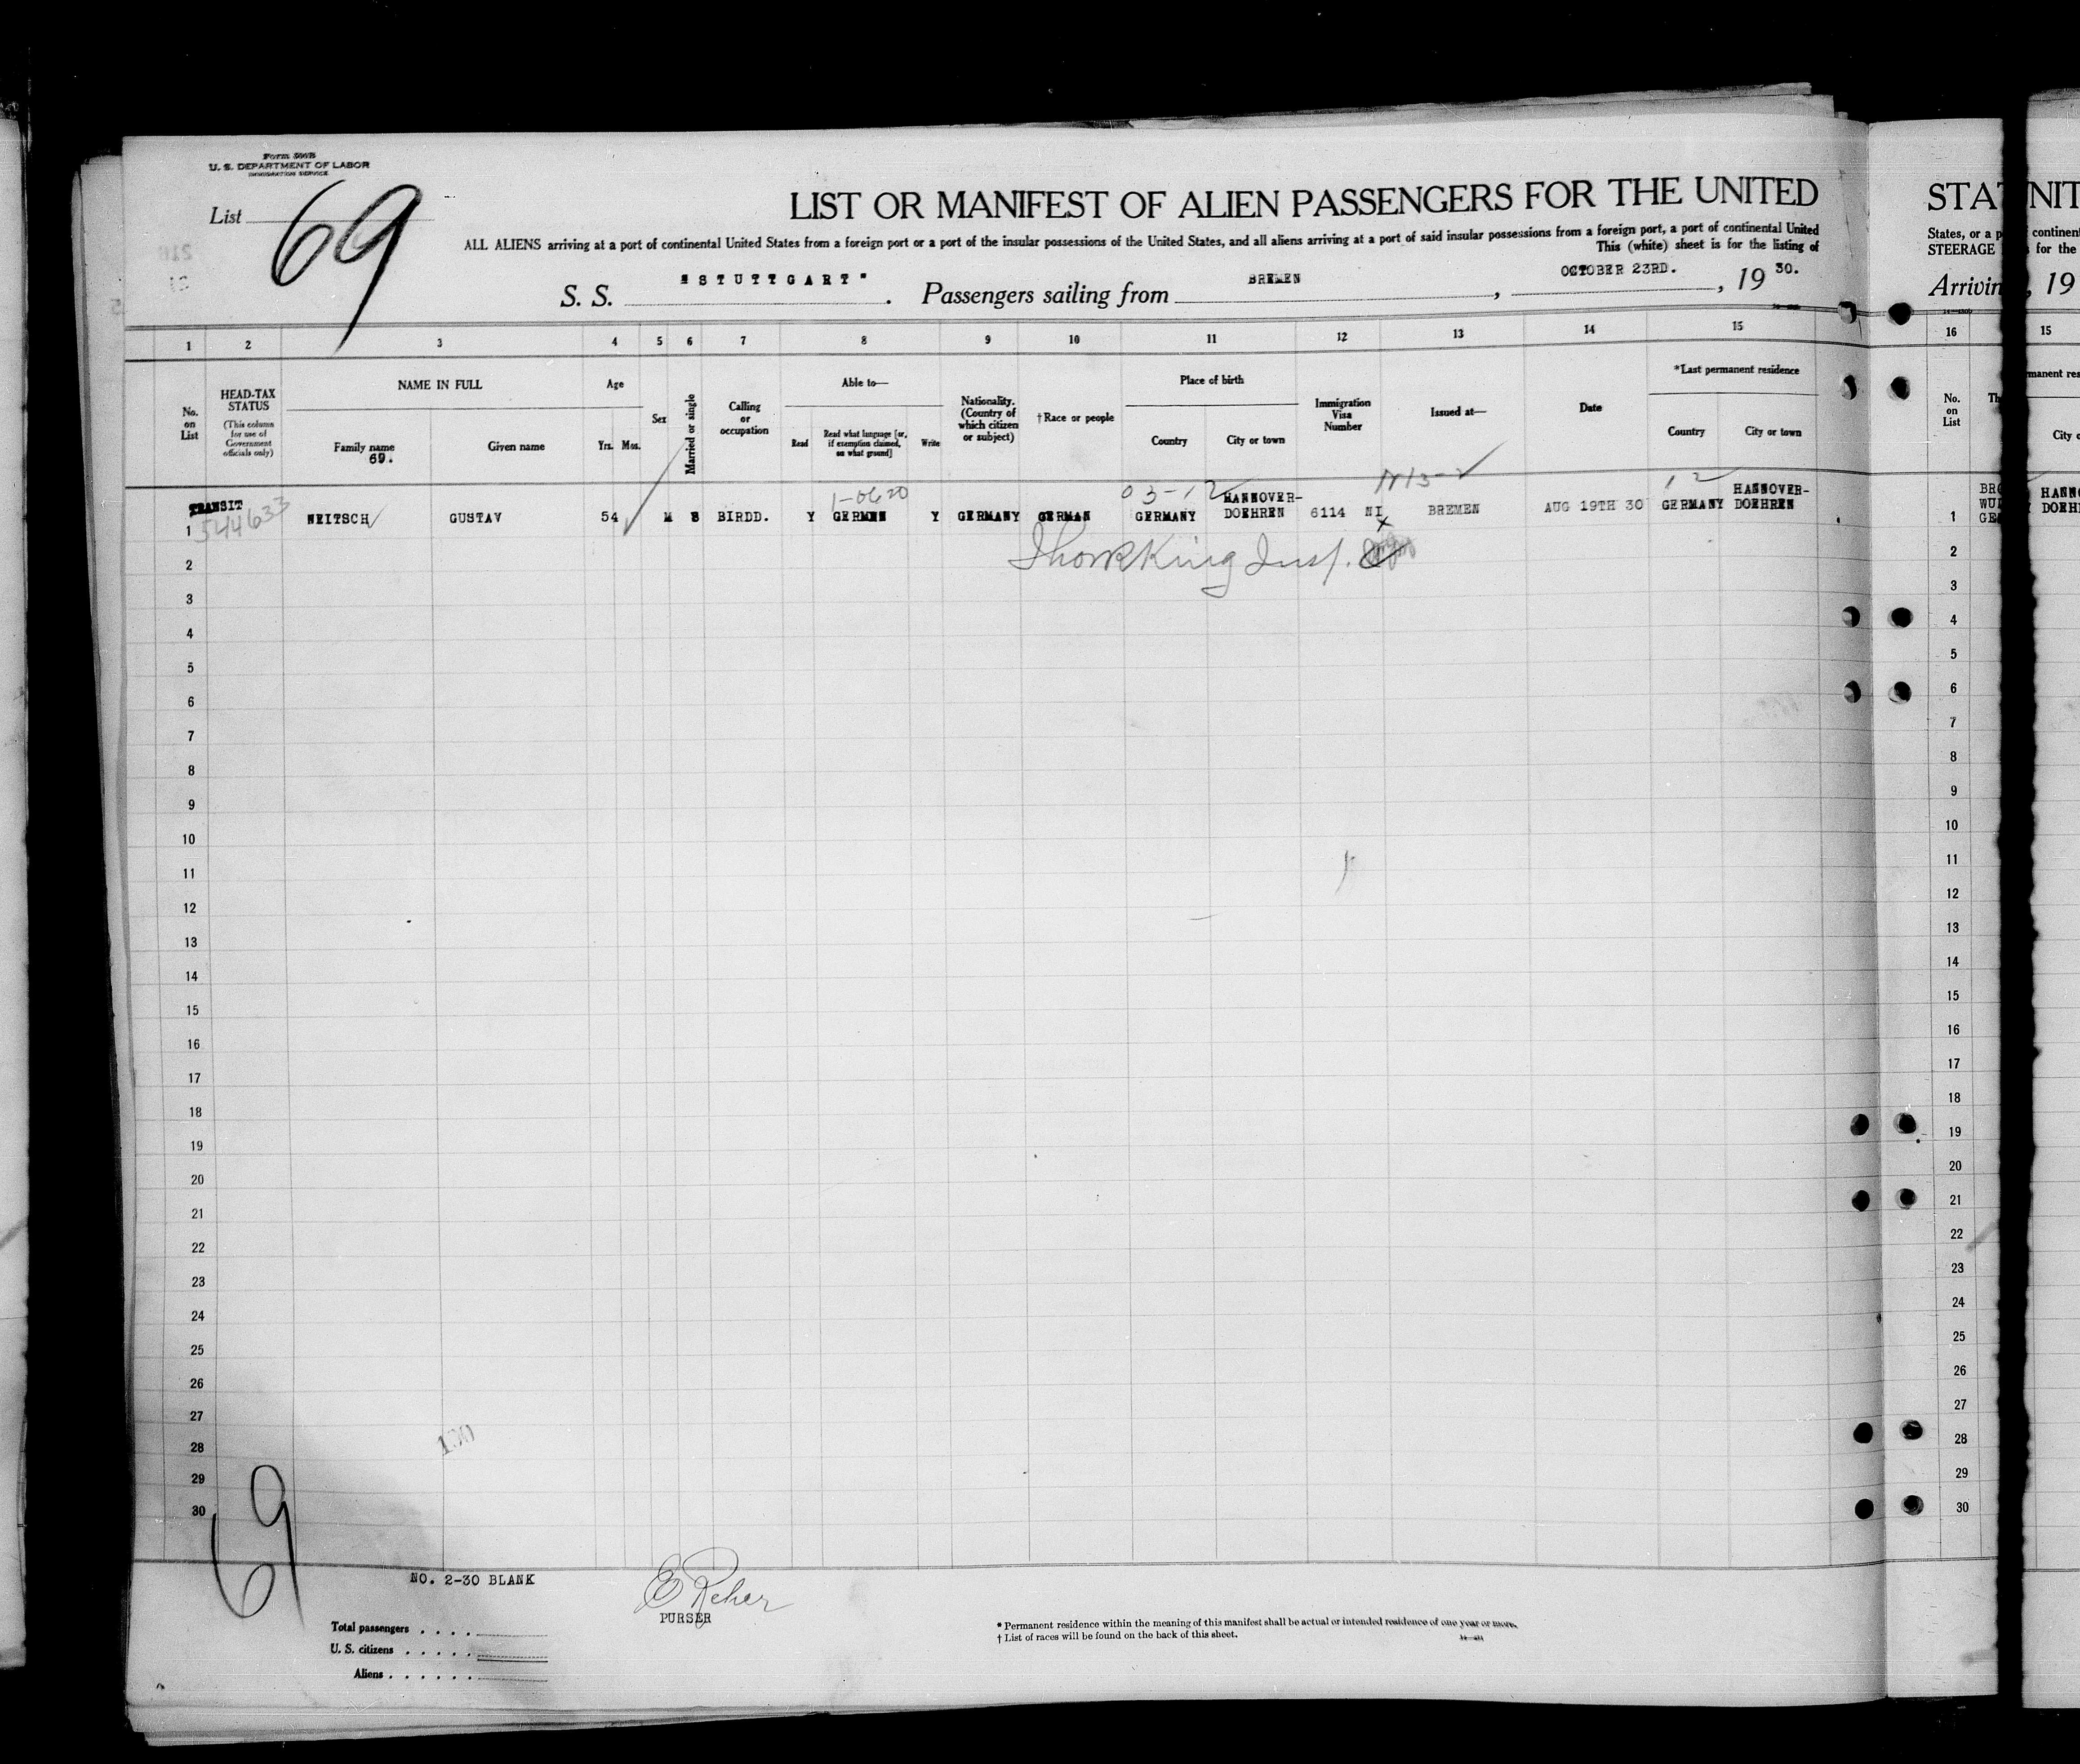 Form 500B
U. S. DEPARTMENT OF LABOR
IMMIGRATION SERVICE
List 69
LIST OR MANIFEST OF ALIEN PASSENGERS FOR THE UNITED
ALL ALIENS arriving at a port of continental United States from a foreign port or a port of the insular possessions of the United States, and all aliens arriving at a port of said insular possessions from a foreign port, a port of continental United
This (white) sheet is for the listing of
S. S. "STUTTGART". Passengers sailing from BREMEN, OCTOBER 23RD., 19 30.
1 2 3 4 5 6 7 8 9 10 11 12 13 14 15
No. on List
HEAD-TAX STATUS
(This column for use of Government officials only)
NAME IN FULL
Family name
Given name
69.
Age
Yrs. Mos.
Sex
Married or single
Calling or occupation
Able to—
Read
Read what language [or, if exemption claimed, on what ground]
Write
Nationality. (Country of which citizen or subject)
†Race or people
Place of birth
Country
City or town
Immigration Visa Number
Issued at—
Date
*Last permanent residence
Country
City or town
TRANSIT
544633
1-0620
03-12
1 NEITSCH GUSTAV 54 M S BIRDD. Y GERMNN Y GERMANY GERMAN GERMANY HANNOVER-DOEHREN 6114 NI BREMEN AUG 19TH 30 GERMANY HANNOVER-DOEHREN
King Insp.
2
3
4
5
6
7
8
9
10
11
12
13
14
15
16
17
18
19
20
21
22
23
24
25
26
27
28
29
30
130
69
NO. 2-30 BLANK
E Reher
PURSER
Total passengers
U. S. citizens
Aliens
* Permanent residence within the meaning of this manifest shall be actual or intended residence of one year or more.
† List of races will be found on the back of this sheet.
STAT
States, or a p
STEERAGE
Arrivin
16
No. on List
Th
BRO
WUI
GE
1
2
3
4
5
6
7
8
9
10
11
12
13
14
15
16
17
18
19
20
21
22
23
24
25
26
27
28
29
30
NIT
continent
s for the
, 19
15
manent res
City o
HANNO
DOEHR